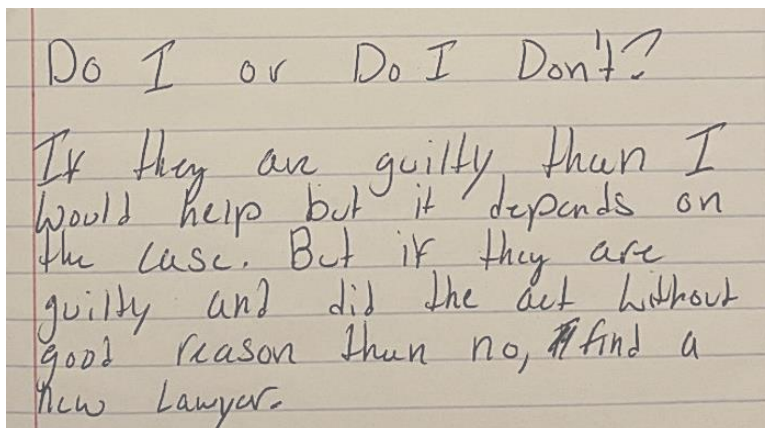 Do I or Do I Don't?
If they are guilty, than I
would help but it depends on
the case. But if they are
guilty and did the act without
good reason than no, find a
new Lawyer.